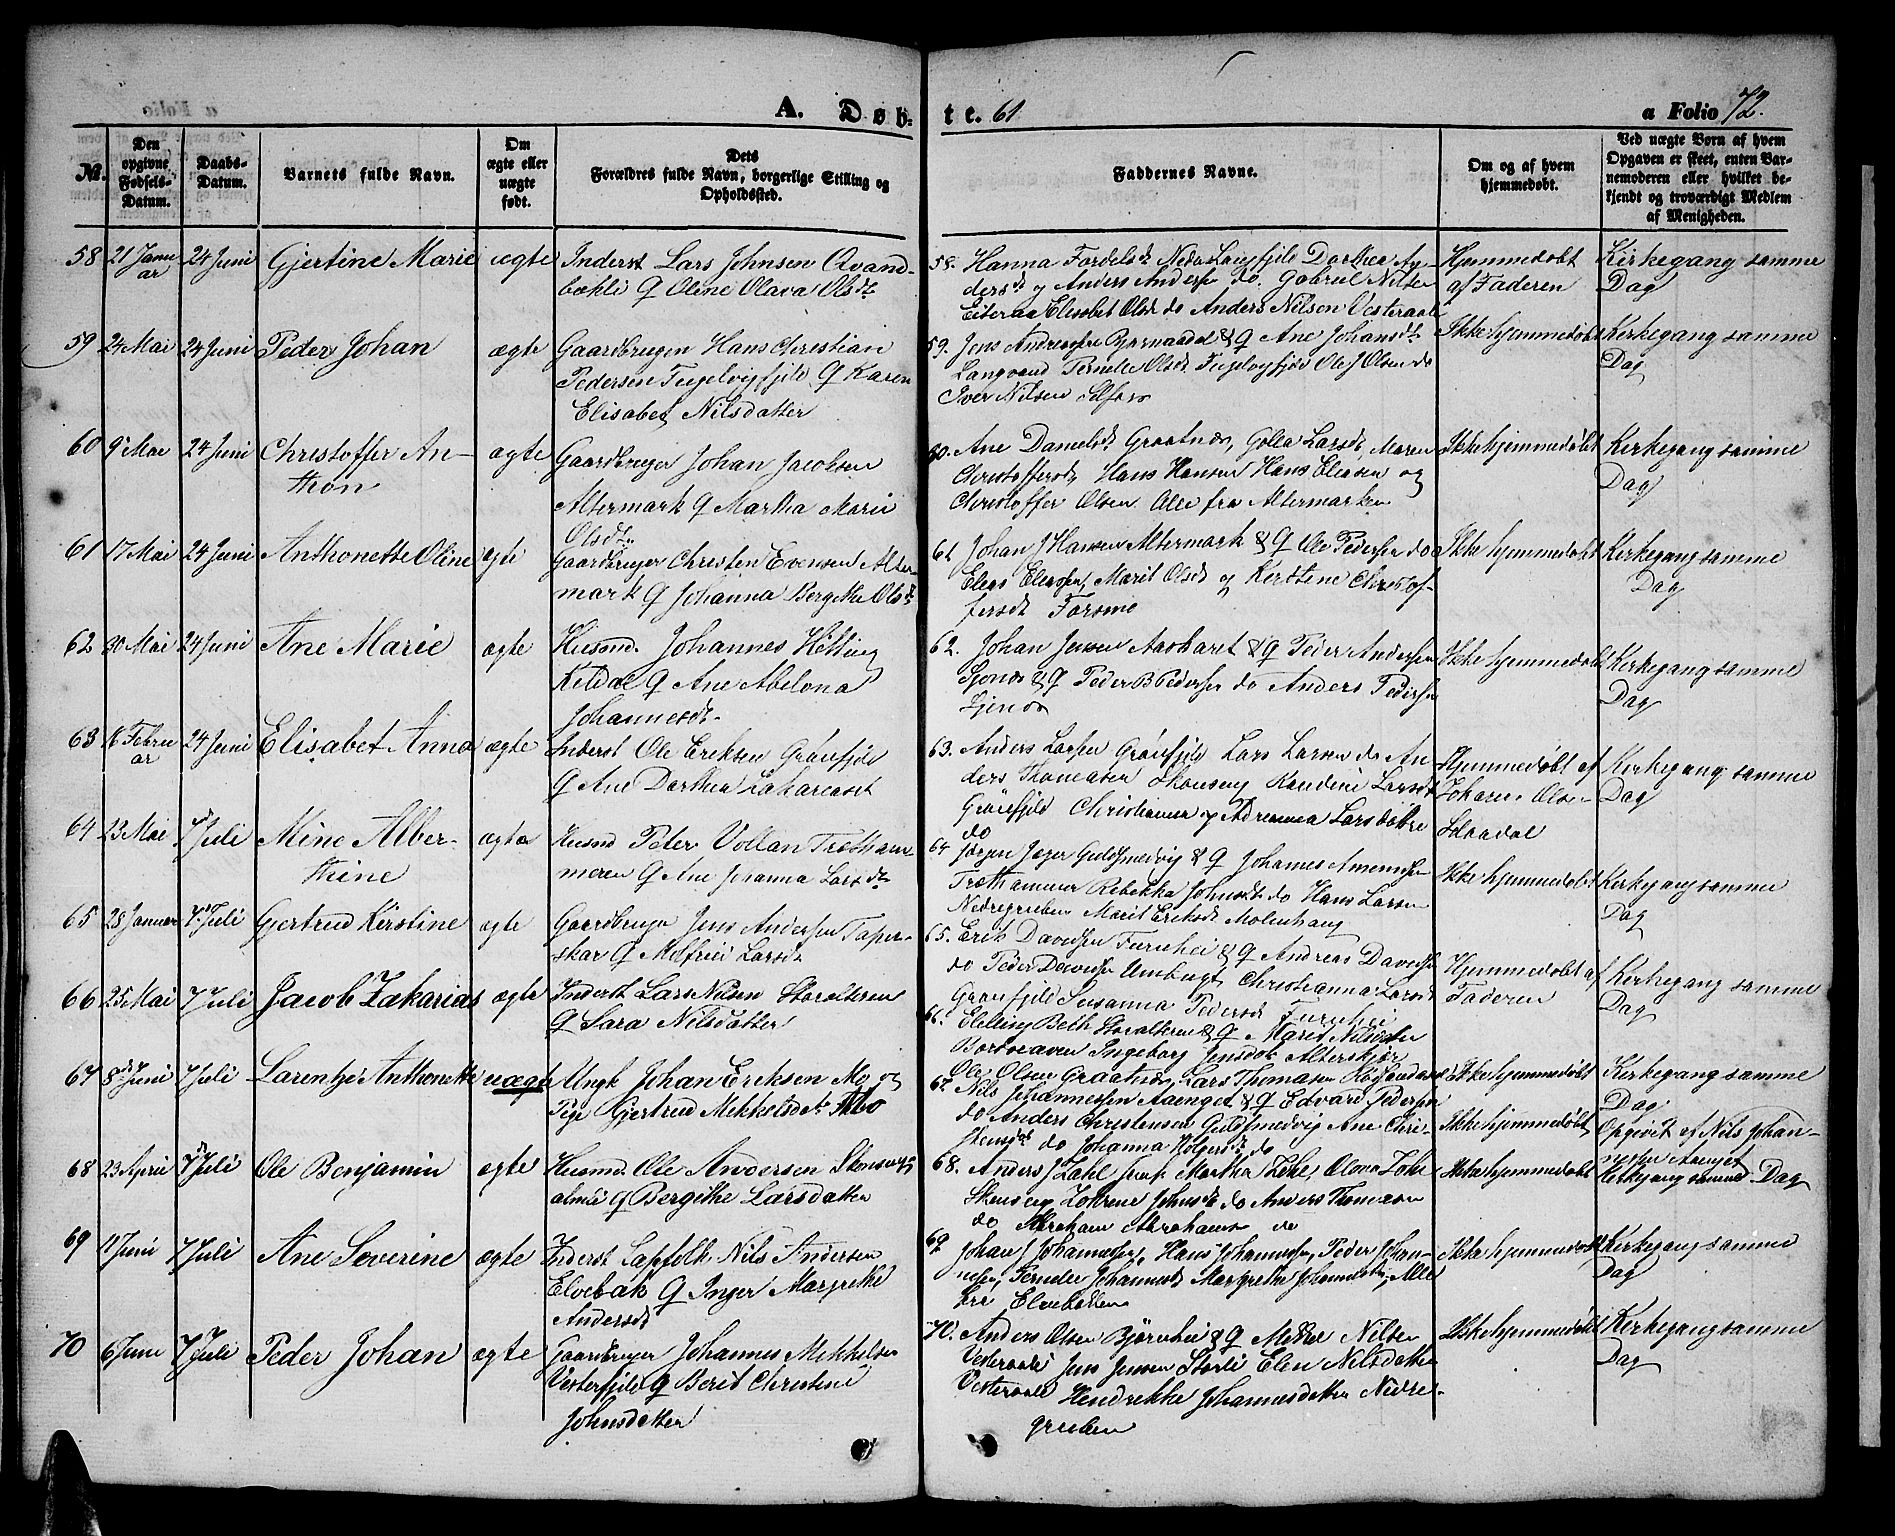 A. Døb-
te. 61
a Folio 72.
No.
Den opgivne Fødsels-Datum.
Daabs-Datum.
Barnets fulde Navn.
Om ægte eller uægte født.
Dets Forældres fulde Navn, borgerlige Stilling og Opholdssted.
Faddernes Navne.
Om og af hvem hjemmedøbt.
Ved uægte Børn af hvem Opgaven er skeet, enten Barnemoderen eller hvilket bekjendt og troværdigt Medlem af Menigheden.
58 21 Januar 24 Juni Gjertine Marie ægte Inderst Lars Johnsen Qvand-
bækli & Oline Olava Olsdt.
58. Hanna Dorthea An-
dersd og Anders Andersen do. Gabriel Nilsen
Eiteraa Elisabet Olsd do Anders Nilsen Vesteraali
Hjemmedøbt
af Faderen
Kirkegang samme
Dag
59 24 Mai 24 Juni Peder Johan ægte Gaardbruger Hans Christian
Pedersen & Karen
Elisabet Nilsdatter
59. Jens Andreasen & Q Ane Johansdt.
Langvand Pernelle Olsdt Ole J Olsen do
Iver Nilsen Selfors
Ikke hjemmedøbt
Kirkegang samme
Dag
60 9 Mai 24 Juni Christoffer An-
thon
ægte Gaardbruger Johan Jacobsen
Altermark & Martha Marie
Olsdt.
60. Ane Danielsdt Graatnes, Golla Larsdt, Maren
Christoffersdt, Hans Hansen Hans Eliasen og
Christoffer Olsen Alle fra Altermarken
Ikke hjemmedøbt
Kirkegang samme
Dag
61 17 Mai 24 Juni Anthonette Oline ægte Gaardbruger Christen Evensen Alter-
mark & Johanna Bergitte Olsdt
61 Johan J Hansen Altermark & Q Ole Pedersen do
Elias Eliasen, Marit Olsdt og Kirstine Christof-
fersdt Forsmo
Ikke hjemmedøbt
Kirkegang samme
Dag
62 30 Mai 24 Juni Ane Marie ægte Husmd. Johannes
Kildal & Ane Abelona
Johannesdt.
62. Johan Jensen & Q Peder Andersen
Sjones & Q Peder B Pedersen do Anders Pedersen
Ikke hjemmedøbt
Kirkegang samme
Dag
63 16 Februar 24 Juni Elisabet Anna ægte Inderst Ole Eriksen Grønfjeld
& Ane Dorthea Zakariasdt
63. Anders Larsen Grønfjeld Lars Larsen do An-
ders Thomasen Skonseng Larsdt
Grønfjeld Christianna og Larsdøtre
do
Hjemmedøbt af
Johan Olsen
Kirkegang samme
Dag
64 23 Mai 7 Juli Mine Alber-
thine
ægte Husmd Peter Vollan Trætham-
meren & Ane Johanna Larsdt.
64 Jørgen Jæger Guldsmedvig & Q Johannes
Træthammer Rebekka Johnsdt do Hans Larsen
Nedregruben Marit Eriksdt Molenhaug
Ikke hjemmedøbt
Kirkegang samme
Dag
65 28 Januar 7. Juli Gjertrud Kirstine ægte Gaardbruger Jens Andersen Taper-
skar & Larsdt
65. Erik Davidsen Furuhei & Q Andreas Davidsen
do Peder Davidsen Umbugt Christianna Larsdt
Grønfjeld Susanna Pedersdt Furuhei
Hjemmedøbt af
Faderen
Kirkegang samme
Dag
66 25 Mai 7 Juli Jacob Zakarias ægte Inderst Lars Nilsen Storalteren
& Sara Nilsdatter
66. Elling Beth Storalteren & Q Marit Nilsdatter
Ingeborg Jensdt Alterskjær
Ole Olsen Graatnes, Lars Thomasen
Ikke hjemmedøbt
Kirkegang samme
Dag
67 8 Juni 7 Juli Larentze Anthonette uægte Ungk Johan Eriksen Mo og
Pige Gjertrud Mikkelsdt. Mo
67. Nils Johannessen Aaenget & Q Edvard Pedersen
do Anders Christensen Guldsmedvig Ane Chri-
stensdt do Johanna Holgersdt do
Ikke hjemmedøbt
Opgivet af Nils Johan-
nesen Aaenget
68 23 April 7 Juli Ole Benjamin ægte Husmd. Ole Andersen Skonseng-
& Bergithe Larsdatter
68. Anders J Zahl Martha Zahl, Olava Zahl
Skonseng Johnsdt do Anders Thomasen
do Abraham Abrahamsn do
Ikke hjemmedøbt
Kirkegang samme Dag
69 11 Juni 7 Juli Ane Severine ægte Inderst Lapfolk Nils Andersen
Elvebak & Inger Margrethe
Andersdt
69 Johan J Johannesen, Hans Johannesen, Peder Johan-
nesen, Pernille Johannesdt Margrethe Johannesdt, Alle
fra Elvebakken
Ikke hjemmedøbt
Kirkegang samme
Dag
70 6 Juni 7 Juli Peder Johan ægte Gaardbruger Johannes Mikkelsen
Vesterfjeld & Berit Christine
Johnsdatter
70. Anders Olsen Bjørnhei & Q Mikkel Nilsen
Vesteraali Jens Jensen Storli Elen Nilsdatter
Vesteraali Hendrikka Johannesdatter Nedre-
gruben
Ikke hjemmedøbt
Kirkegang samme
Dag